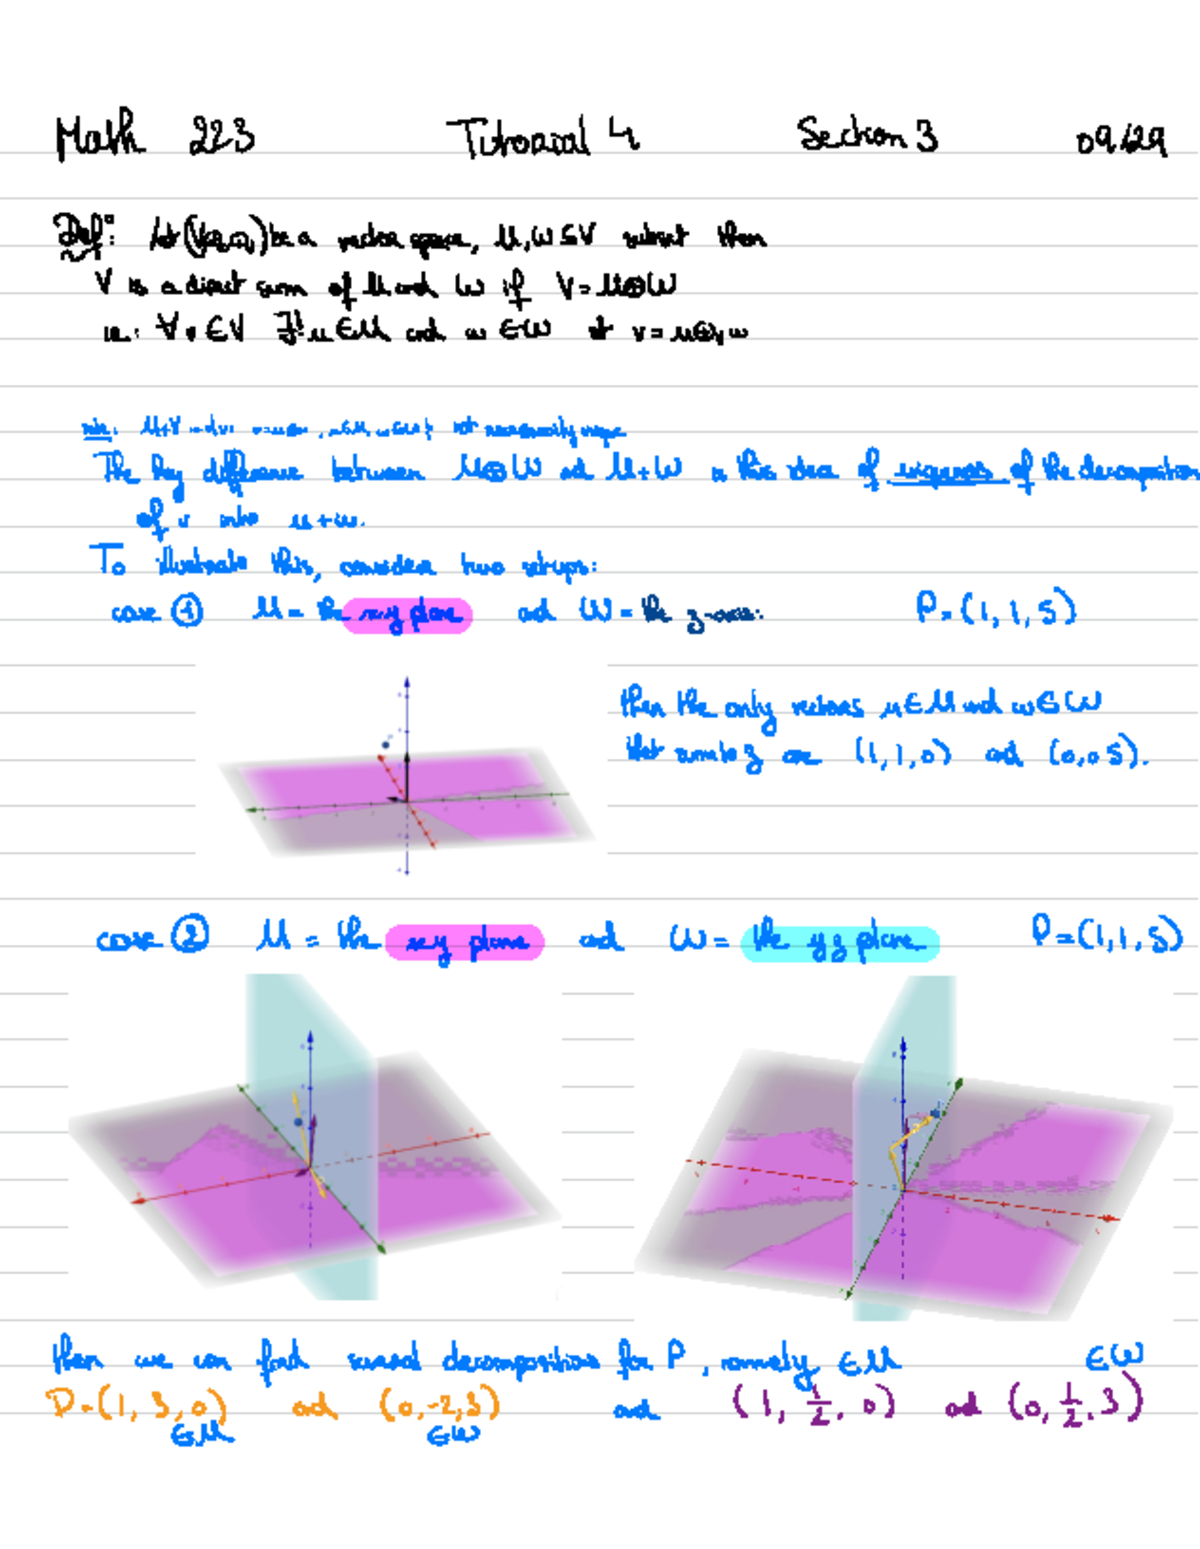 Math 223 Tutorial 4 Section 3 09/29
Def: let (V, ⊕, ⊙) be a vector space, U, W ⊆ V subset then
V is a direct sum of U and W if V = U⊕W
ie: ∀ v ∈ V ∃! u ∈ U and w ∈ W st v = u ⊕ᵥ w
not necessarily unique
The key difference between U⊕W and U+W is this idea of uniqueness of the decomposition
of v into u+w.
To illustrate this, consider two setups:
case ① U = the xy plane and W = the z-axis. P=(1, 1, 5)
then the only vectors u ∈ U and w ∈ W
that sum to are (1, 1, 0) and (0,0 5).
case ② U = the xy plane and W = the yz plane P=(1, 1, 5)
then we can find several decompositions for P, namely ∈U ∈W
P=(1, 3, 0) and (0, -2, 3) and (1, 1/2, 0) and (0, 1/2, 3)
∈U ∈W